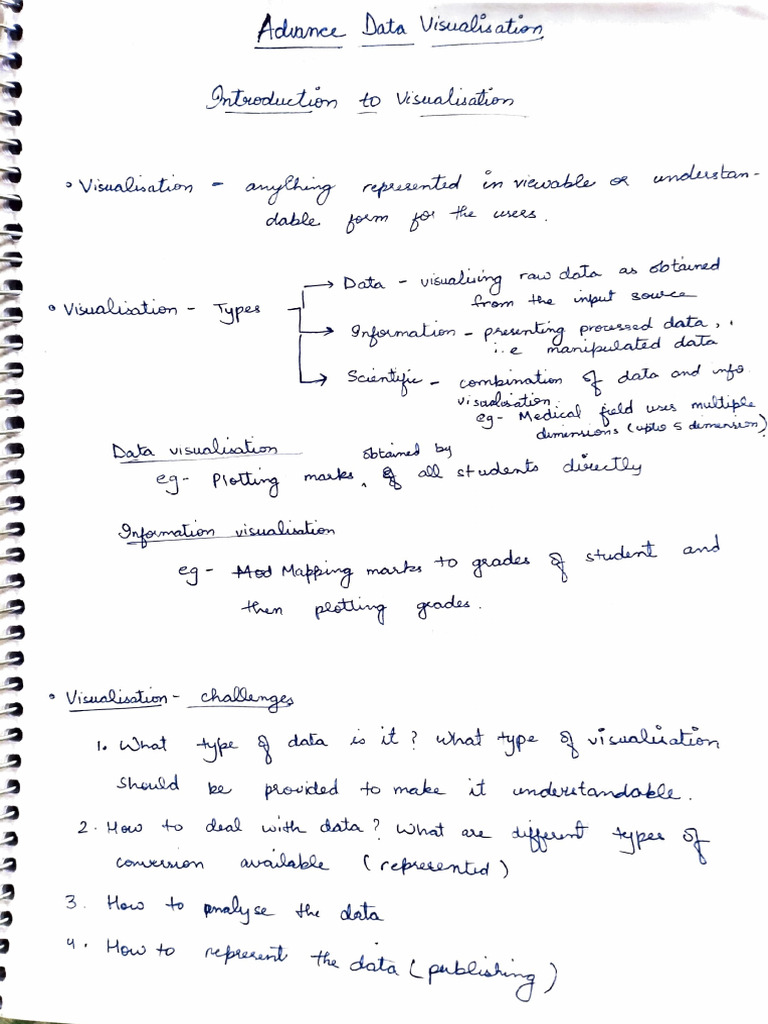 Advance Data Visualisation
Introduction to Visualisation
• Visualisation - anything represented in viewable or understan-
dable form for the users.
• Visualisation - Types
→ Data - visualising raw data as obtained
from the input source
→ Information - presenting processed data,
i.e manipulated data
→ Scientific - combination of data and info.
visualisation.
eg- Medical field uses multiple
dimensions (upto 5 dimension)
Data visualisation
obtained by
eg- Plotting marks, all students directly
Information visualisation
eg- Mod Mapping marks to grades of student and
then plotting grades.
• Visualisation - challenges
1. What type of data is it? What type of visualisation
should be provided to make it understandable.
2. How to deal with data? What are different types of
conversion available (represented)
3. How to analyse the data
4. How to represent the data (publishing)